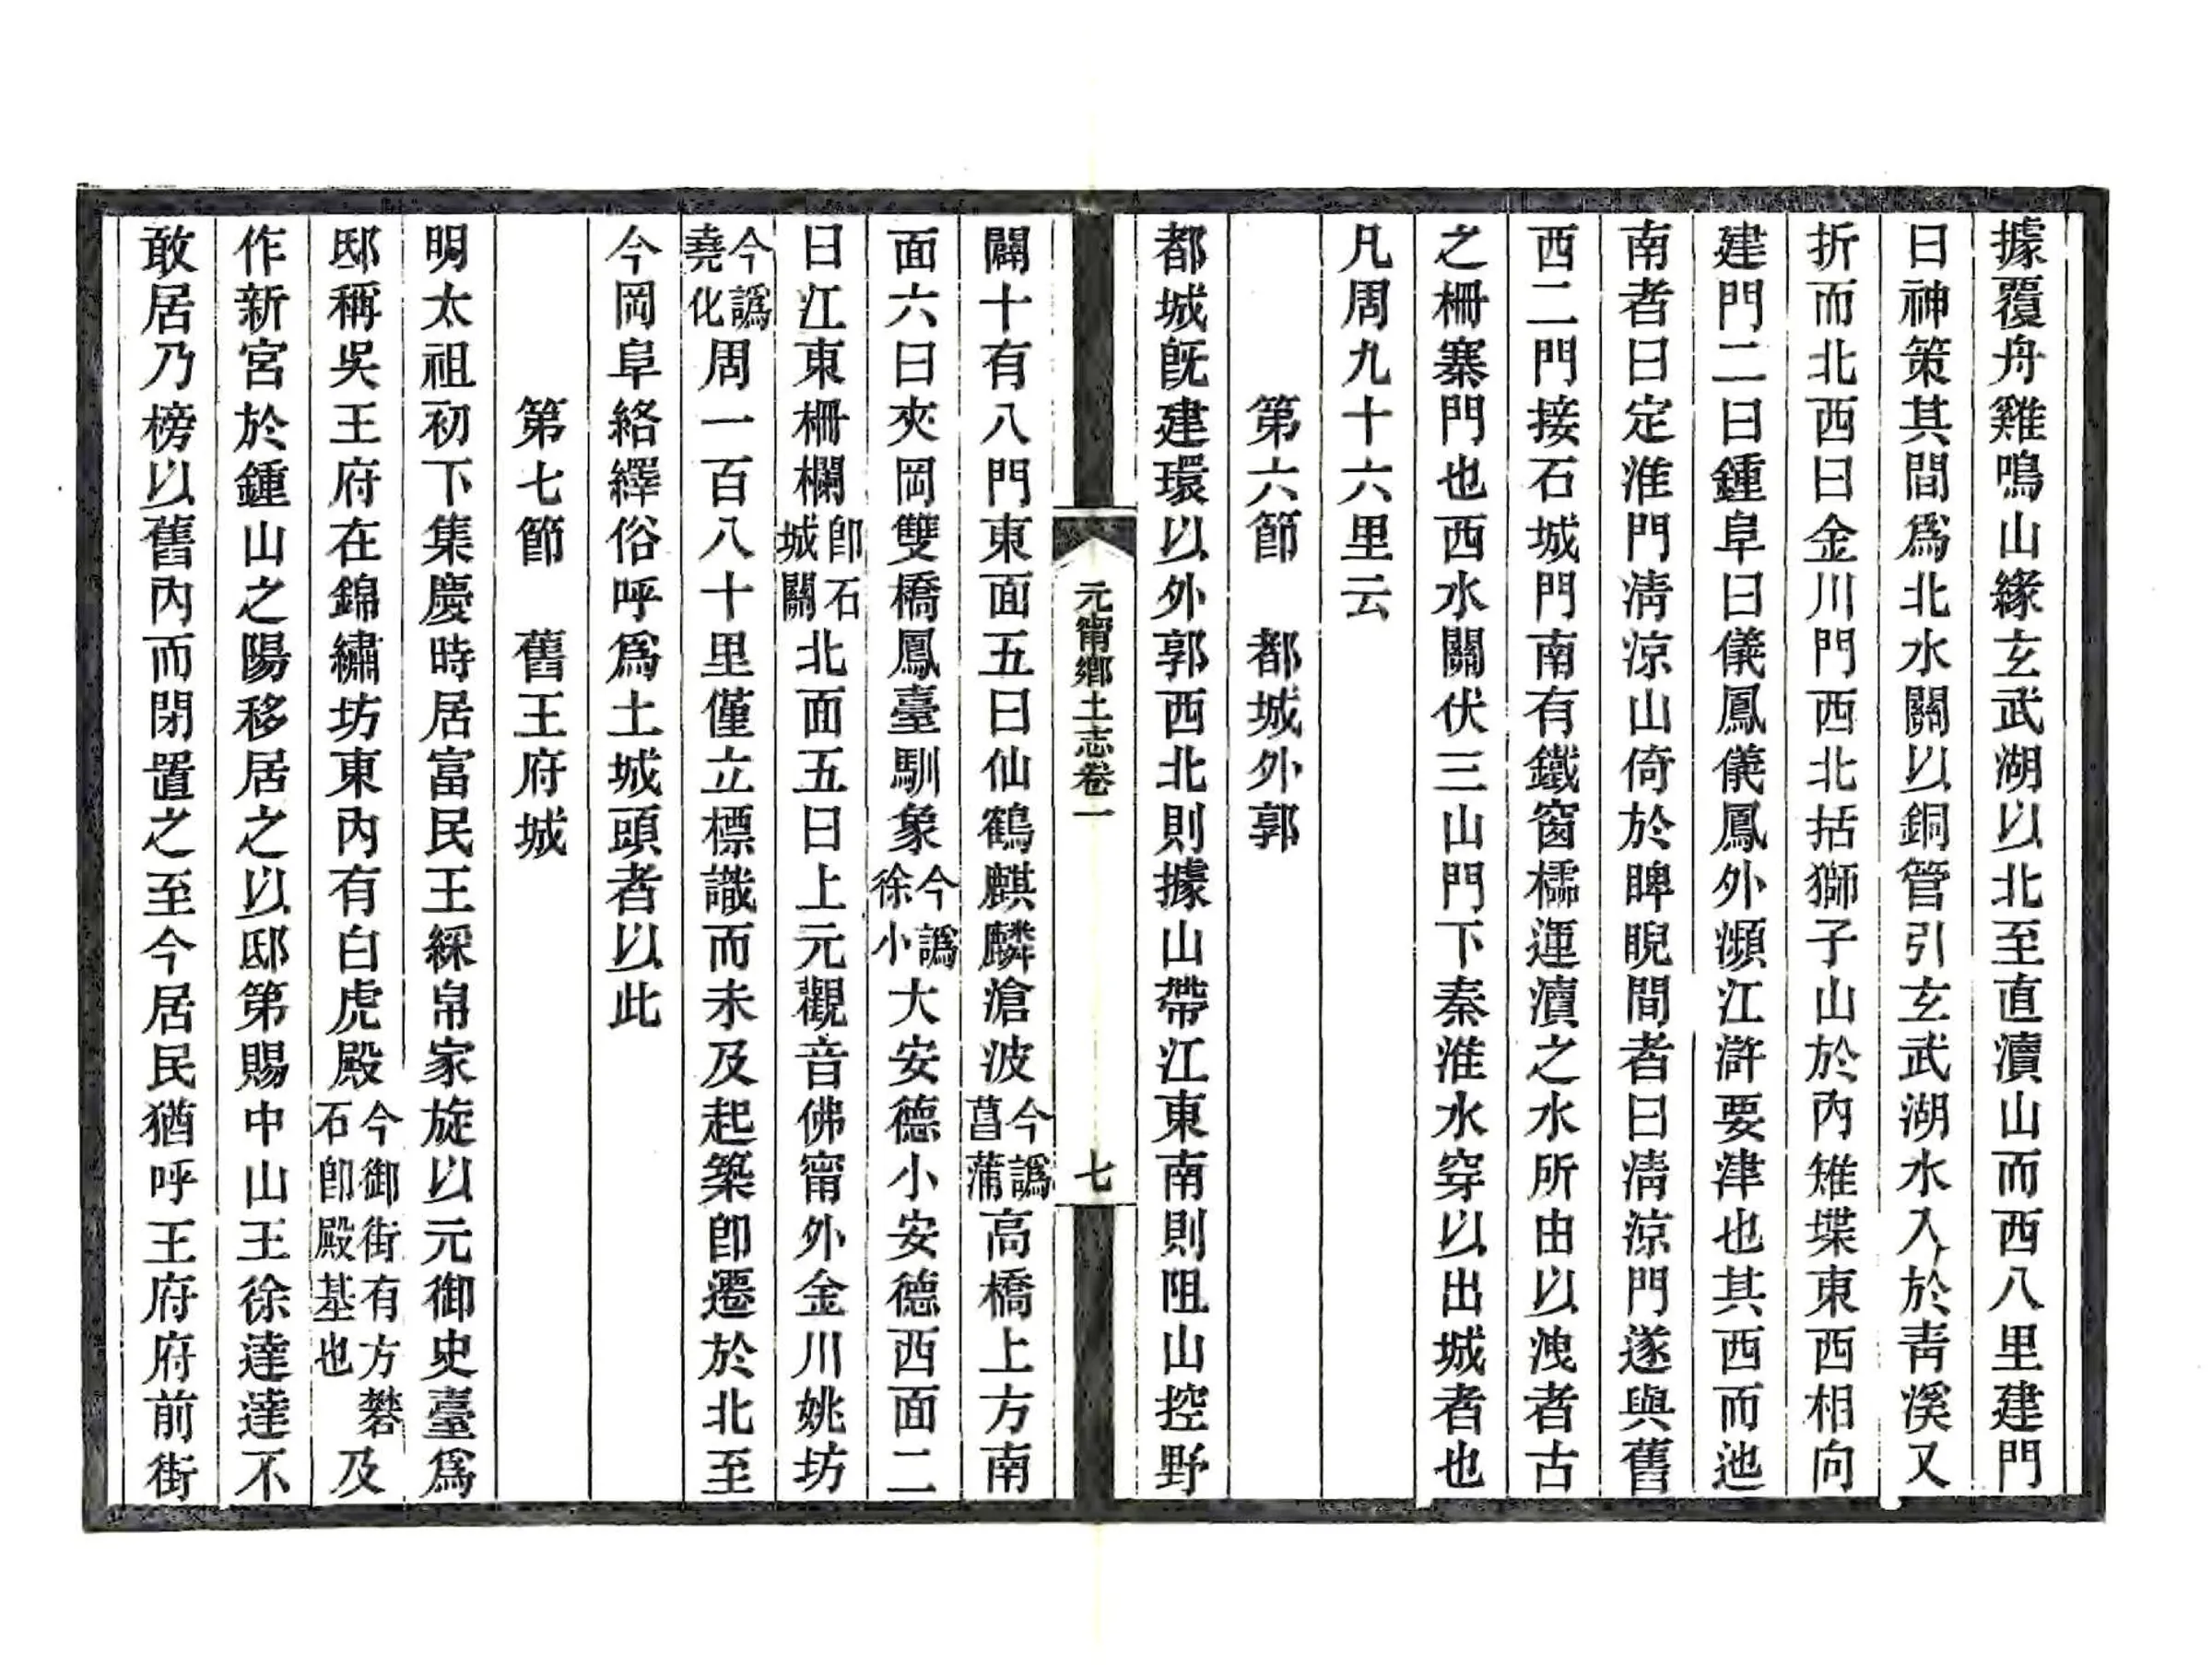 據覆舟雞鳴山緣玄武湖以北至直瀆山而西八里建門
曰神策其間爲北水關以銅管引玄武湖水入於青溪又
折而北西曰金川門西北括獅子山於內雉堞東西相向
建門二曰鍾阜曰儀鳳儀鳳外瀕江滸要津也其西而迆
南者曰定淮門清涼山倚於睥睨間者曰清涼門遂與舊
西二門接石城門南有鐵窗櫺運瀆之水所由以洩者古
之柵寨門也西水關伏三山門下秦淮水穿以出城者也
凡周九十六里云
第六節　都城外郭
都城旣建環以外郭西北則據山帶江東南則阻山控野
元甯鄉土志卷一　七
闢十有八門東面五曰仙鶴麒麟滄波今譌菖蒲高橋上方南
面六曰夾岡雙橋鳳臺馴象今譌徐小大安德小安德西面二
曰江東柵欄卽石城關北面五曰上元觀音佛甯外金川姚坊
今譌堯化周一百八十里僅立標識而未及起築卽遷於北至
今岡阜絡繹俗呼爲土城頭者以此
第七節　舊王府城
明太祖初下集慶時居富民王綵帛家旋以元御史臺爲
邸稱吳王府在錦繡坊東內有白虎殿今御街有方礬石卽殿基也及
作新宮於鍾山之陽移居之以邸第賜中山王徐達達不
敢居乃榜以舊內而閉置之至今居民猶呼王府府前街